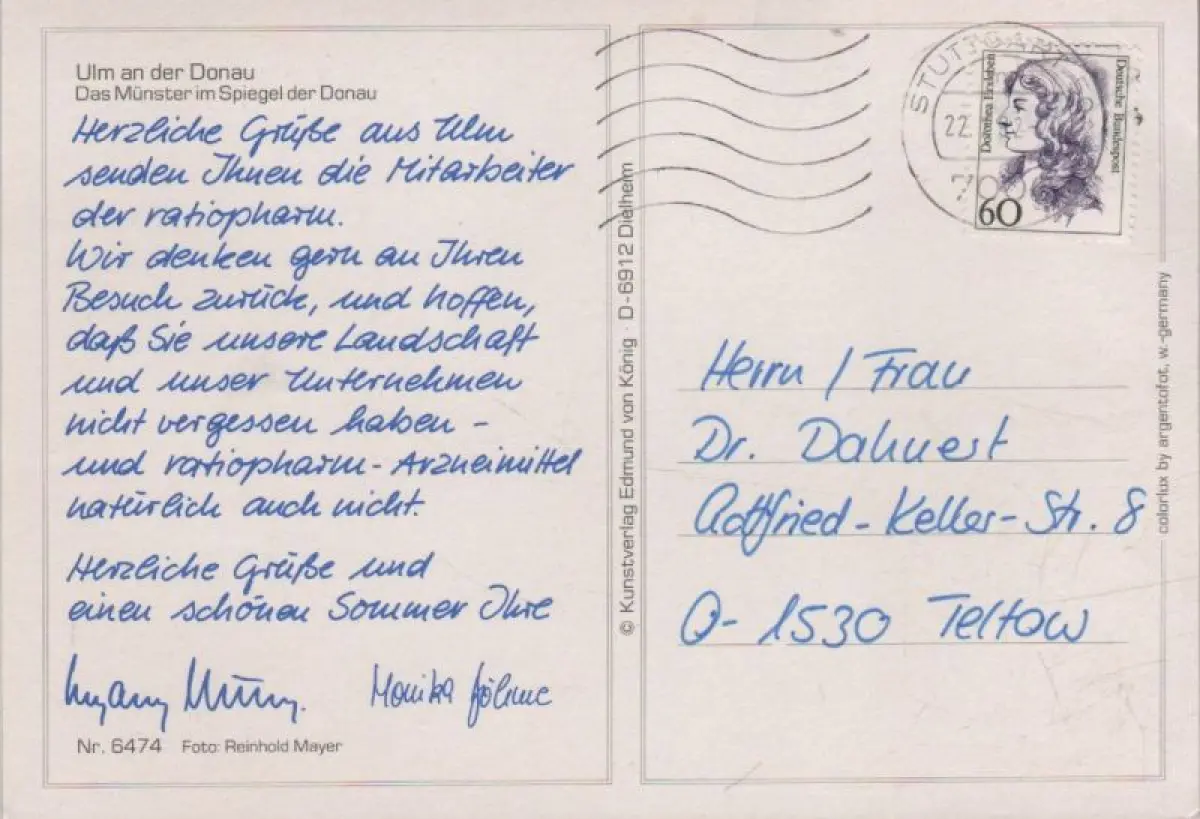 Ulm an der Donau
Das Münster im Spiegel der Donau
Herzliche Grüße aus Ulm
senden Ihnen die Mitarbeiter
der ratiopharm.
Wir denken gern an Ihren
Besuch zurück, und hoffen,
daß Sie unsere Landschaft
und unser Unternehmen
nicht vergessen haben -
und ratiopharm-Arzneimittel
natürlich auch nicht.
Herzliche Grüße und
einen schönen Sommer Ihre
Monika Böhme
Nr. 6474 Foto: Reinhold Mayer
© Kunstverlag Edmund von König · D-6912 Dielheim
STUTTGART
22.
Dorothea Erxleben
Deutsche Bundespost
60
Herrn / Frau
Dr. Dahnert
Gottfried-Keller-Str. 8
O-1530 Teltow
colorlux by argentofot, w.-germany